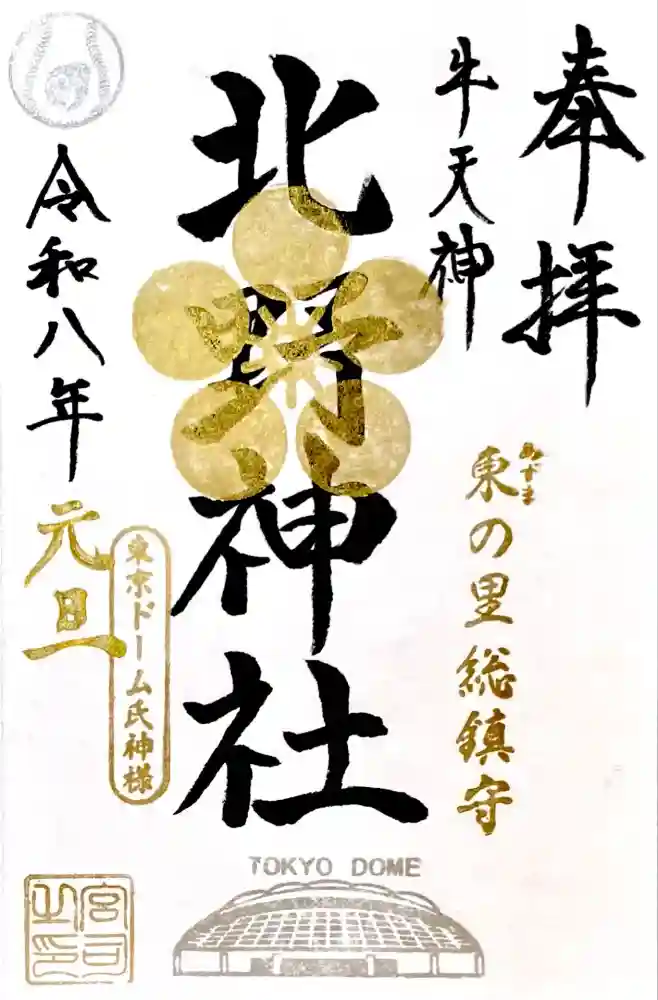 奉拝
牛天神
あずま
東の里総鎮守
北野神社
令和八年
元旦
東京ドーム氏神様
宮司
之印
TOKYO DOME